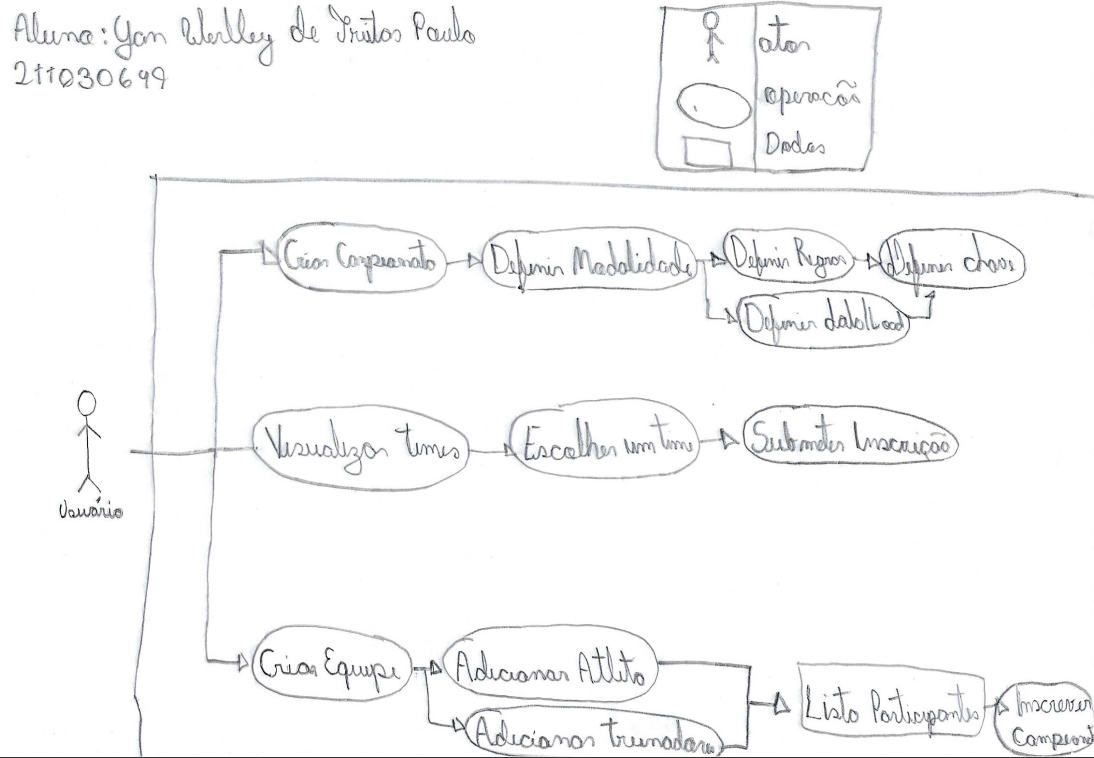 Aluno: Yan Werlley de Freitas Paulo
211030649
ator
operação
Dados
Criar Campeonato
Definir Modalidade
Definir Regras
Definir chave
Definir
Visualizar times
Escolher um time
Submeter Inscrição
Usuário
Criar Equipe
Adicionar Atleta
Adicionar treinadores
Lista Participantes
Inscrever